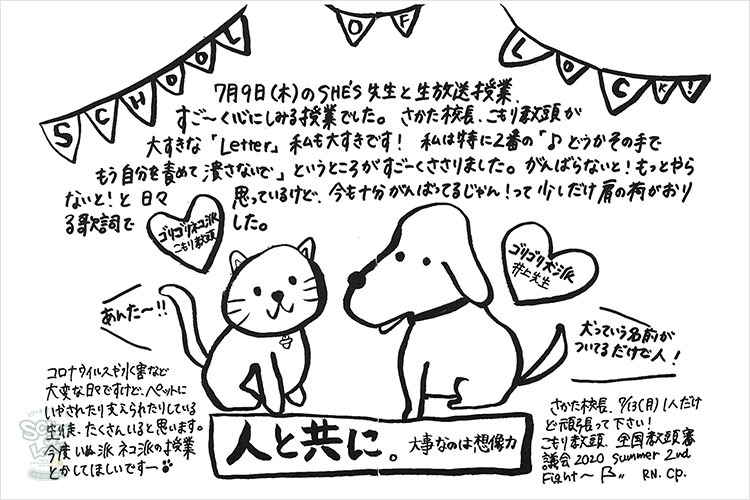 SCHOOL OF LOCK!
7月9日(木)のSHE'S先生と生放送授業、
すご〜く心にしみる授業でした。さかた校長、こもり教頭が
大すきな「Letter」私も大すきです！ 私は特に2番の「♪どうかその手で
もう自分を責めて潰さないで」というところがすごーくささりました。がんばらないと！もっとやら
ないと！と日々 思っているけど、今も十分がんばってるじゃん！って少しだけ肩の荷がおり
る歌詞で した。
ゴリゴリネコ派
こもり教頭
ゴリゴリ犬派
井上先生
あんた〜!!
犬っていう名前が
ついてるだけで人！
コロナウイルスや水害など
大変な日々ですけど、ペットに
いやされたり支えられたりしている
生徒、たくさんいると思います。
今度いぬ派ネコ派の授業
とかしてほしいです〜
人と共に。
大事なのは想像力
さかた校長、7/13(月)1人だけ
ど頑張って下さい！
こもり教頭、全国教頭審
議会2020 summer 2nd
Fight〜
RN. Cp.